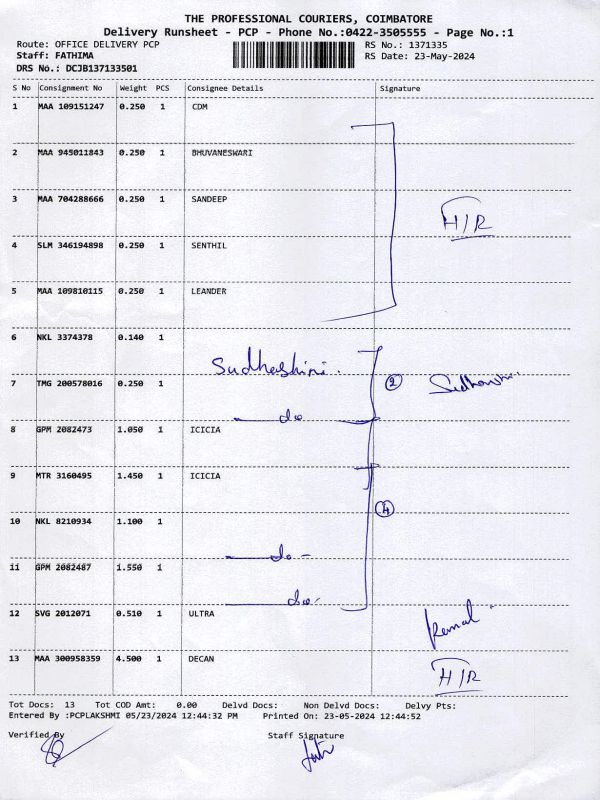 THE PROFESSIONAL COURIERS, COIMBATORE
Delivery Runsheet - PCP - Phone No.:0422-3505555 - Page No.:1
Route: OFFICE DELIVERY PCP RS No.: 1371335
Staff: FATHIMA RS Date: 23-May-2024
DRS No.: DCJB137133501
S No Consignment No Weight PCS Consignee Details Signature
1 MAA 109151247 0.250 1 CDM
2 MAA 945011843 0.250 1 BHUVANESWARI
3 MAA 704288666 0.250 1 SANDEEP
H/R
4 SLM 346194898 0.250 1 SENTHIL
5 MAA 109810115 0.250 1 LEANDER
6 NKL 3374378 0.140 1
Sudhashini.
7 TMG 200578016 0.250 1 2
do
8 GPM 2082473 1.050 1 ICICIA
9 MTR 3160495 1.450 1 ICICIA
4
10 NKL 8210934 1.100 1
do -
11 GPM 2082487 1.550 1
do.
12 SVG 2012071 0.510 1 ULTRA
13 MAA 300958359 4.500 1 DECAN
H/R
Tot Docs: 13 Tot COD Amt: 0.00 Delvd Docs: Non Delvd Docs: Delvy Pts:
Entered By :PCPLAKSHMI 05/23/2024 12:44:32 PM Printed On: 23-05-2024 12:44:52
Verified By Staff Signature